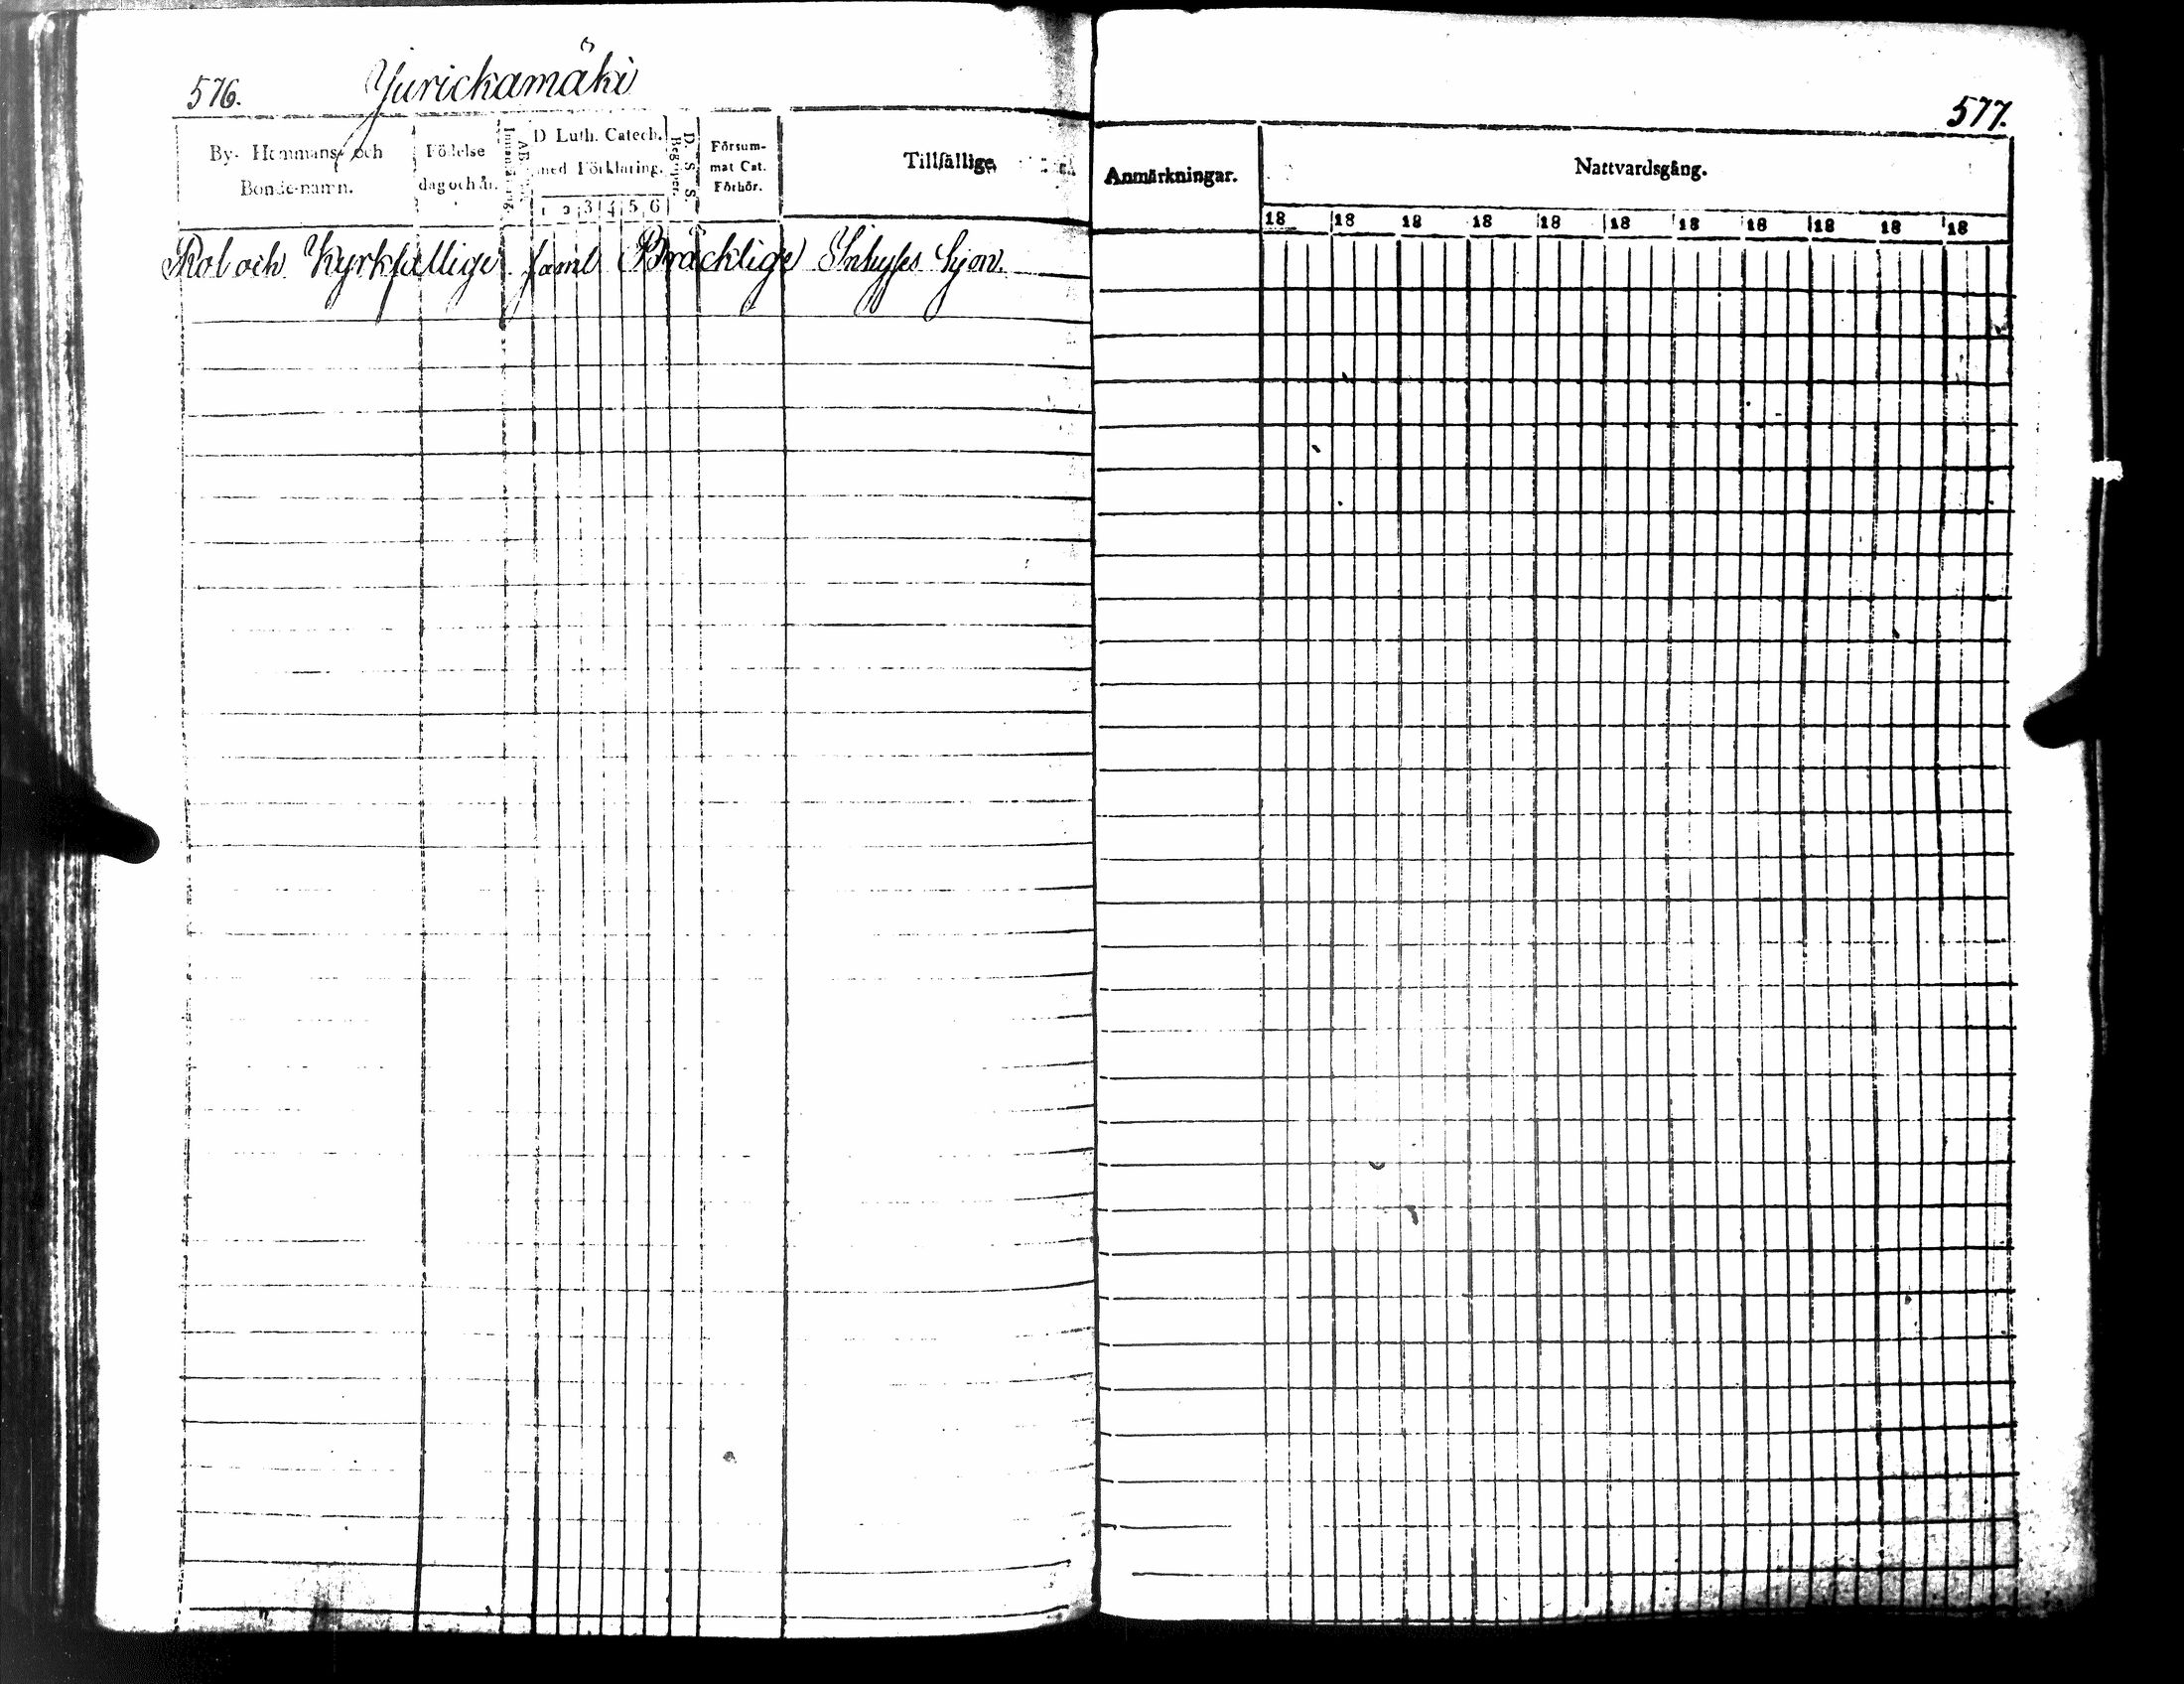 576.
Jurickamäki
By- Hemmans- och
Bonde-namn.
Födelse
dag och år.
Innanläsning.
D Luth. Catech.
med Förklaring.
1 2 3 4 5 6
D. S. S.
Begreper.
Försum-
mat Cat.
Förhör.
Tillfällige
Rol och Kyrkfällige samt Bräcklige Inhyses hjon.
577.
Anmärkningar.
Nattvardsgång.
18 18 18 18 18 18 18 18 18 18 18